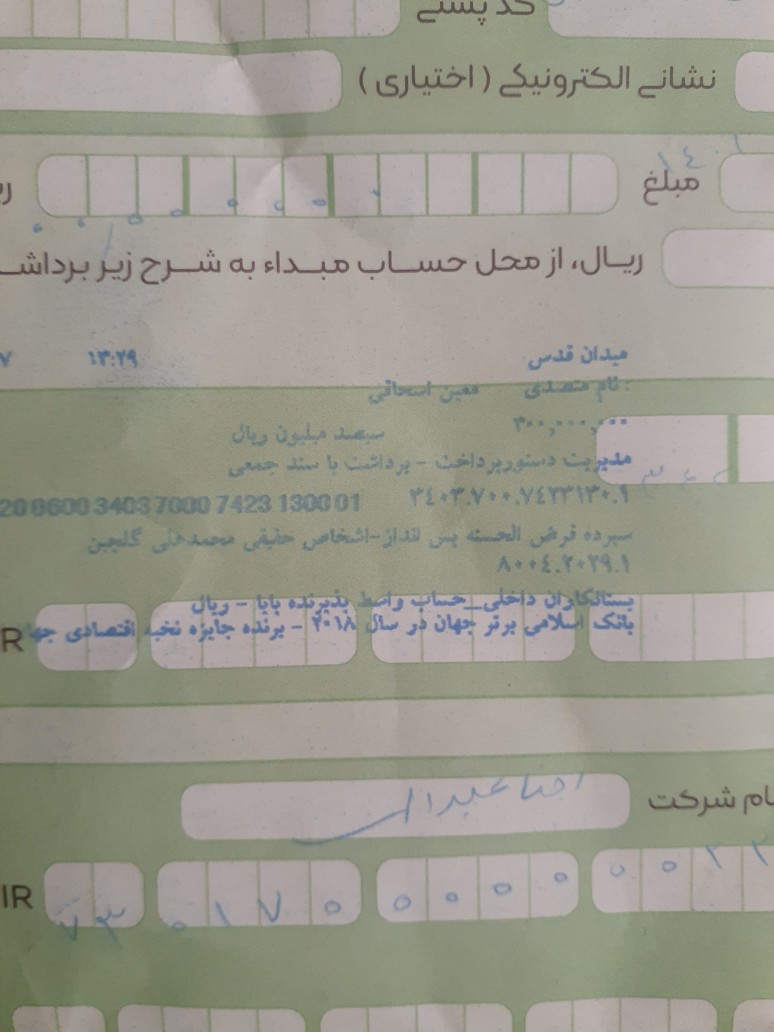 کد پستے
نشانے الکترونیکے ( اختیاری )
مبلغ
ریال، از محل حساب مبداء به شرح زیر برداشـ
میدان قدس ۱۳:۲۹ ۷
نام متصدی : معین اسحاقی
۳۰۰,۰۰۰,۰۰۰ سیصد میلیون ریال
مدیریت دستورپرداخت - برداشت با سند جمعی
۳۴۰۳.۷۰۰.۷۴۲۳۱۳۰.۱ 20 0600 3403 7000 7423 1300 01
سپرده قرض الحسنه پس انداز-اشخاص حقیقی محمدعلی گلچین
۸۰۰۴.۲۰۲۹.۱
بستانکاران داخلی_حساب واسط پذیرنده پایا - ریال
بانک اسلامی برتر جهان در سال ۲۰۱۸ - برنده جایزه نخبه اقتصادی جها
R
ام شرکت
IR ۷۳ ۰۱۷۰ ۰۰۰۰ ۰۰